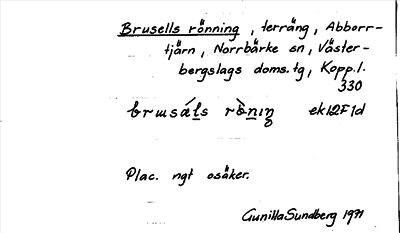 Brusells rönning, terräng, Abborr-
tjärn, Norrbärke sn, Väster-
bergslags doms.tg, Kopp.l.
330
ek12F1d
Plac. ngt osäker.
Gunilla Sundberg 1971